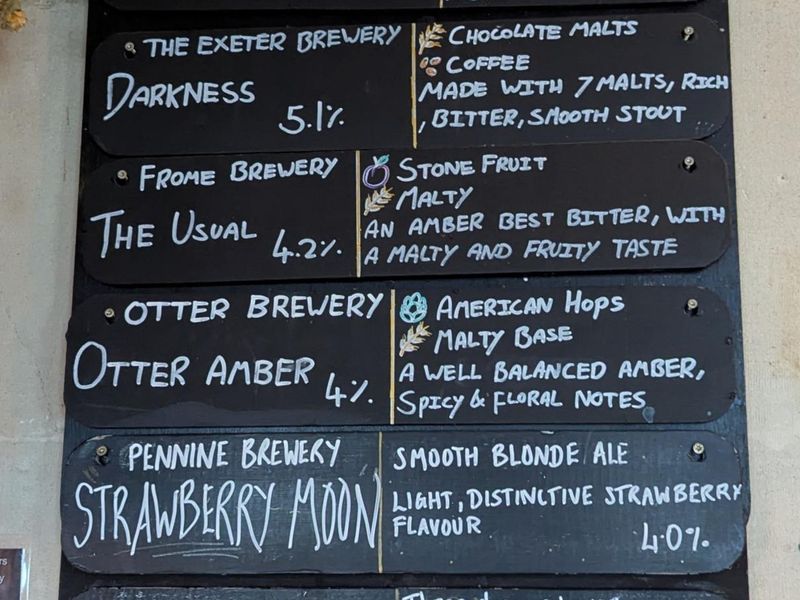 THE EXETER BREWERY
DARKNESS
5.1%
CHOCOLATE MALTS
COFFEE
MADE WITH 7 MALTS, RICH
, BITTER, SMOOTH STOUT
FROME BREWERY
THE USUAL
4.2%
STONE FRUIT
MALTY
AN AMBER BEST BITTER, WITH
A MALTY AND FRUITY TASTE
OTTER BREWERY
OTTER AMBER
4%
AMERICAN HOPS
MALTY BASE
A WELL BALANCED AMBER,
SPICY & FLORAL NOTES
PENNINE BREWERY
STRAWBERRY MOON
SMOOTH BLONDE ALE
LIGHT, DISTINCTIVE STRAWBERRY
FLAVOUR
4.0%